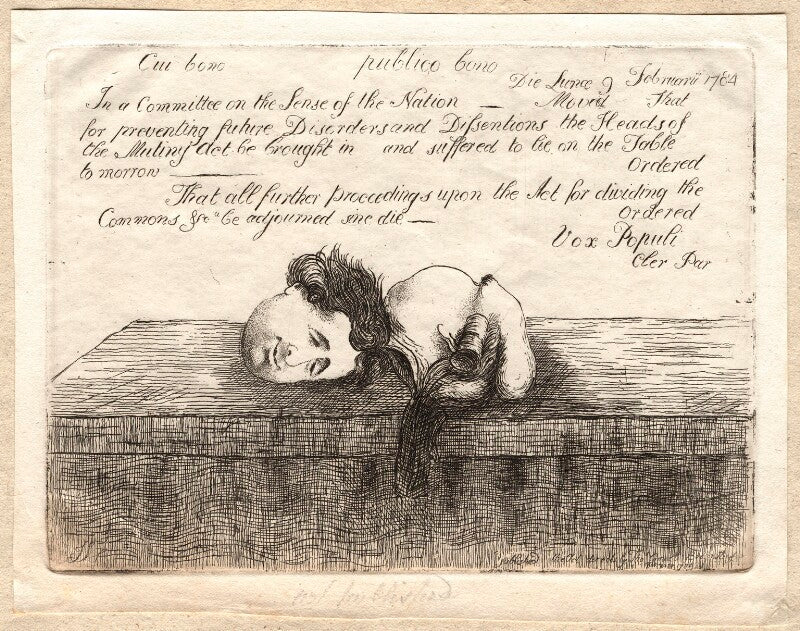 Cui bono publico bono
Die Lunæ 9 Februarii 1784
In a Committee on the Sense of the Nation — Moved That
for preventing future Disorders and Dissentions the Heads of
the Mutiny Act be brought in and suffered to lie on the Table
to morrow — Ordered
That all further proceedings upon the Act for dividing the
Commons &c be adjourned sine die — Ordered
Vox Populi
Cler Par
published
not published